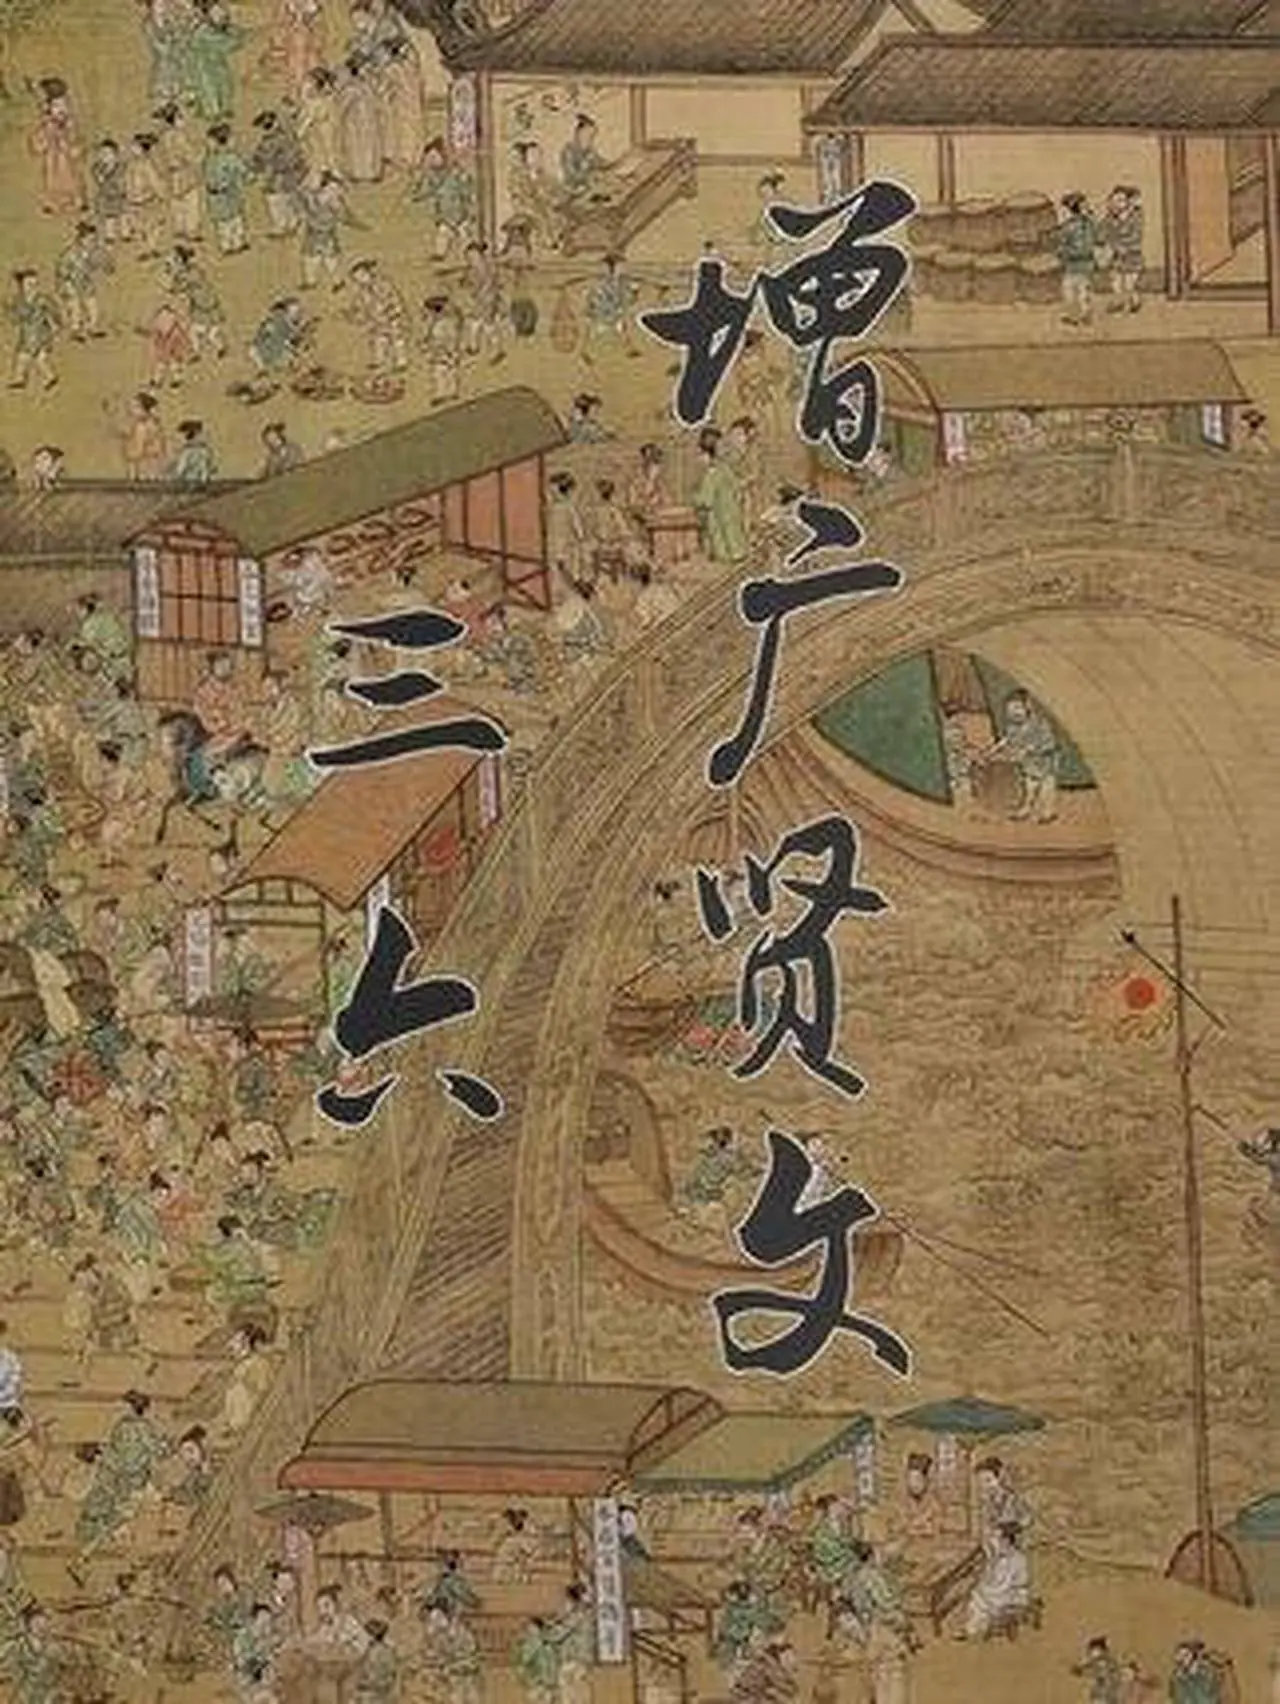 增广贤文
三六